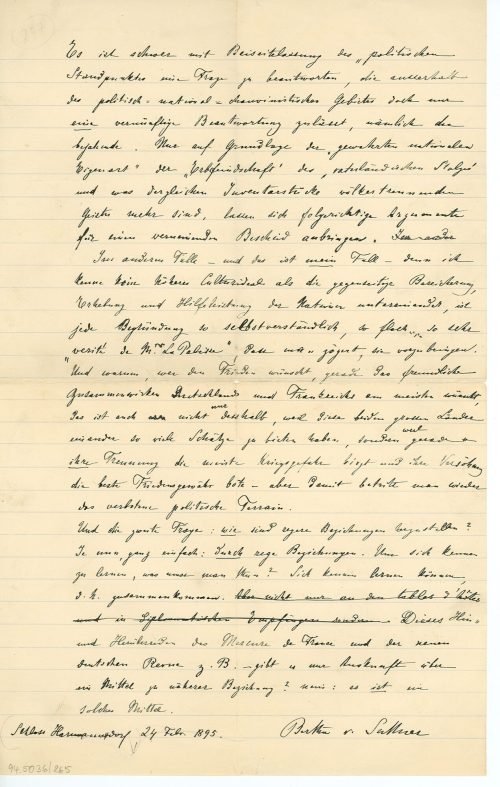 Es ist schwer mit Beiseitelassung des „politischen
Standpunktes eine Frage zu beantworten, die ausserhalb
des politisch-national-chauvinistischen Gebietes doch nur
eine vernünftige Beantwortung zulässt, nämlich die
bejahende. Nur auf Grundlage der „gewahrten nationalen
Eigenart" der „Erbfeindschaft" des „vaterländischen Stolzes"
und was dergleichen Inventarstücke völkertrennenden
Geistes mehr sind, lassen sich folgerichtige Argumente
für einen verneinenden Bescheid anbringen.
Im anderen Falle – und das ist mein Fall – denn ich
kenne kein höheres Culturideal als die gegenseitige Bereicherung,
Erhebung und Hilfeleistung der Nationen untereinander, ist
jede Begründung so selbstverständlich, so flach, so sehr
„verité de Mr. La Palisse", dass man zögert, sie vorzubringen.
Und warum, wer den Frieden wünscht, gerade das freundliche
Zusammenwirken Deutschlands und Frankreichs am meisten wünscht,
das ist auch nicht nur desshalb, weil diese beiden grossen Länder
einander so viele Schätze zu bieten haben, sondern weil gerade
ihre Trennung die meiste Kriegsgefahr birgt und ihre Versöhnung
die beste Friedensgewähr böte – aber damit betritt man wieder
das verbotene politische Terrain.
Und die zweite Frage: wie sind regere Beziehungen herzustellen?
Je nun, ganz einfach: durch rege Beziehungen. Um sich kennen
zu lernen, was muss man thun? Sich kennen lernen können,
d. h. zusammenkommen. Aber nicht nur an den tables d'hôtes
und in diplomatischen Empfängen sondern Dieses Hin-
und Herüberreden des Mercure de France und der neuen
deutschen Revue z. B. – gibt es nur Auskunft über
ein Mittel zu näherer Beziehung? nein: es ist ein
solches Mittel.
Schloss Harmannsdorf 24 Febr. 1895. Bertha v. Suttner
94.5036/265